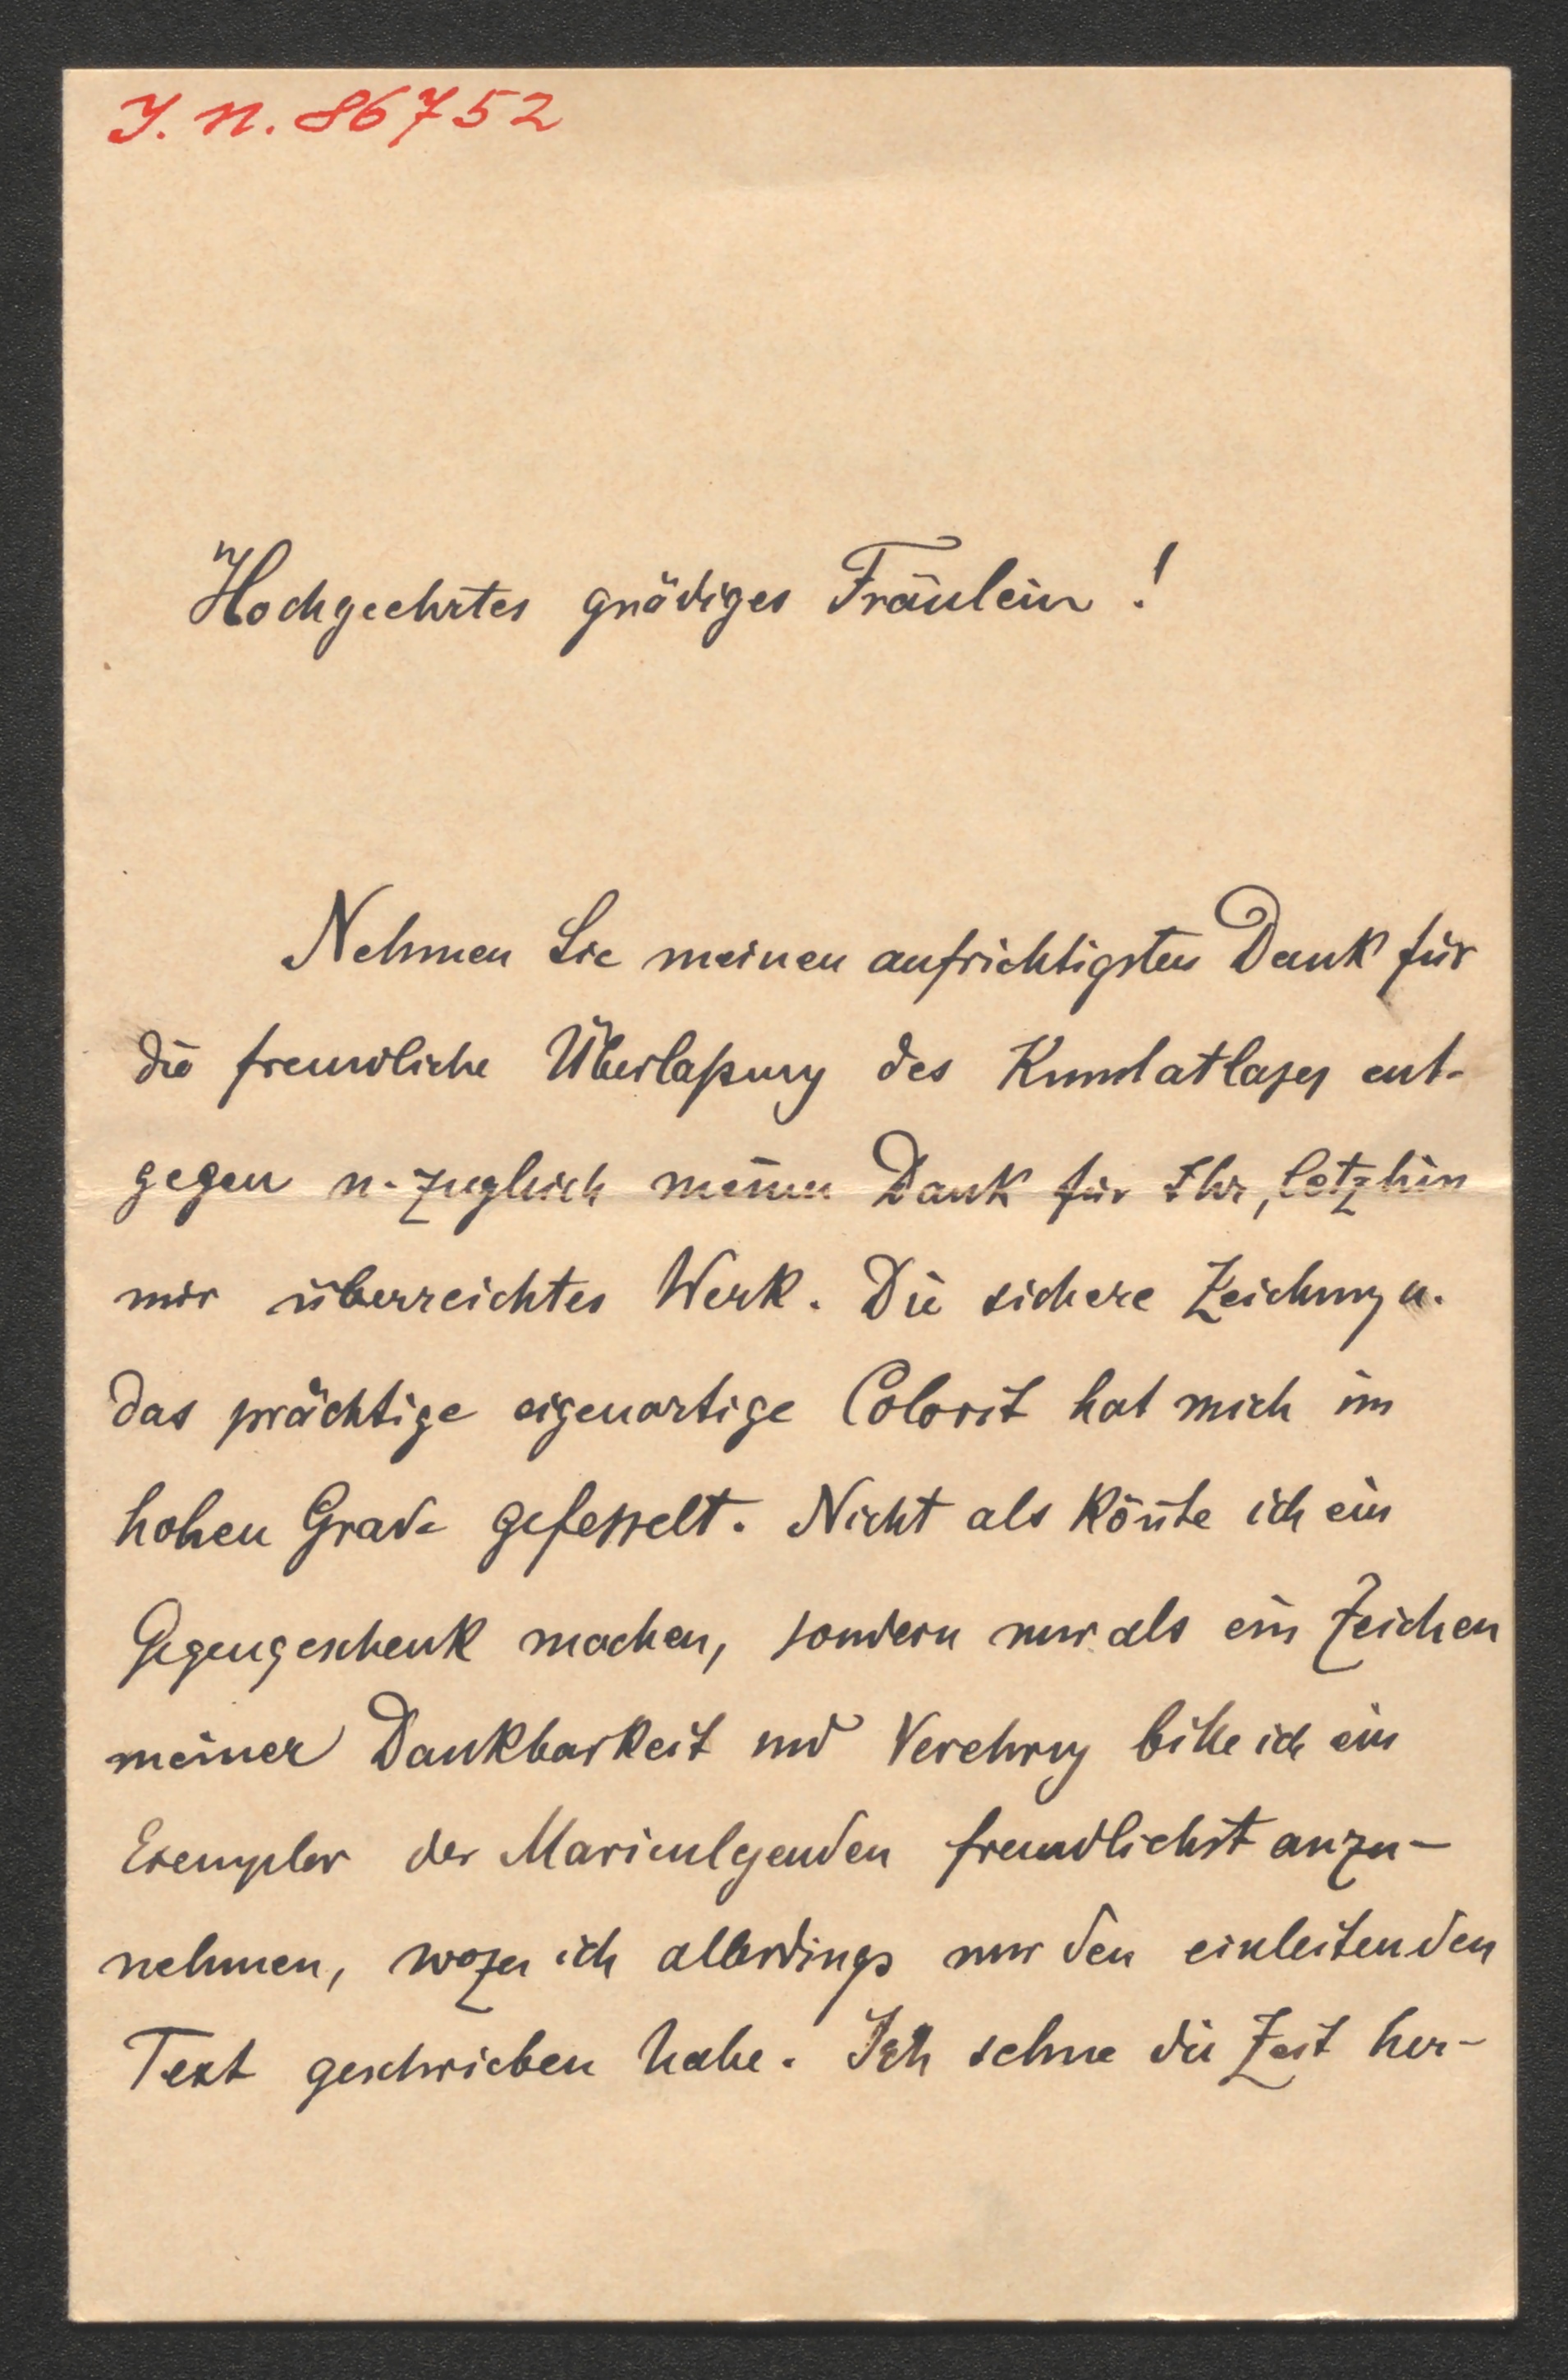 J. N. 86752
Hochgeehrtes gnädiges Fräulein!
Nehmen Sie meinen aufrichtigsten Dank für
die freundliche Überlaßung des Kunstatlases ent-
gegen u. zugleich meinen Dank für Ihr, letzhin
mir überreichtes Werk. Die sichere Zeichnung u.
das prächtige eigenartige Colorit hat mich im
hohen Grade gefesselt. Nicht als kön̄te ich ein
Gegengeschenk machen, sondern nur als ein Zeichen
meiner Dankbarkeit und Verehrung bitte ich ein
Exemplar der Marienlgenden freundlichst anzu-
nehmen, wozu ich allerdings nur den einleitenden
Text geschrieben habe. Ich sehne die Zeit her-